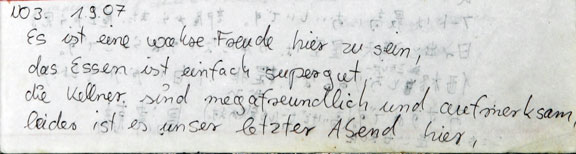 NO3. 1907
Es ist eine wahre Freude hier zu sein,
das Essen ist einfach supergut,
die Kellner sind megafreundlich und aufmerksam,
leider ist es unser letzter Abend hier,